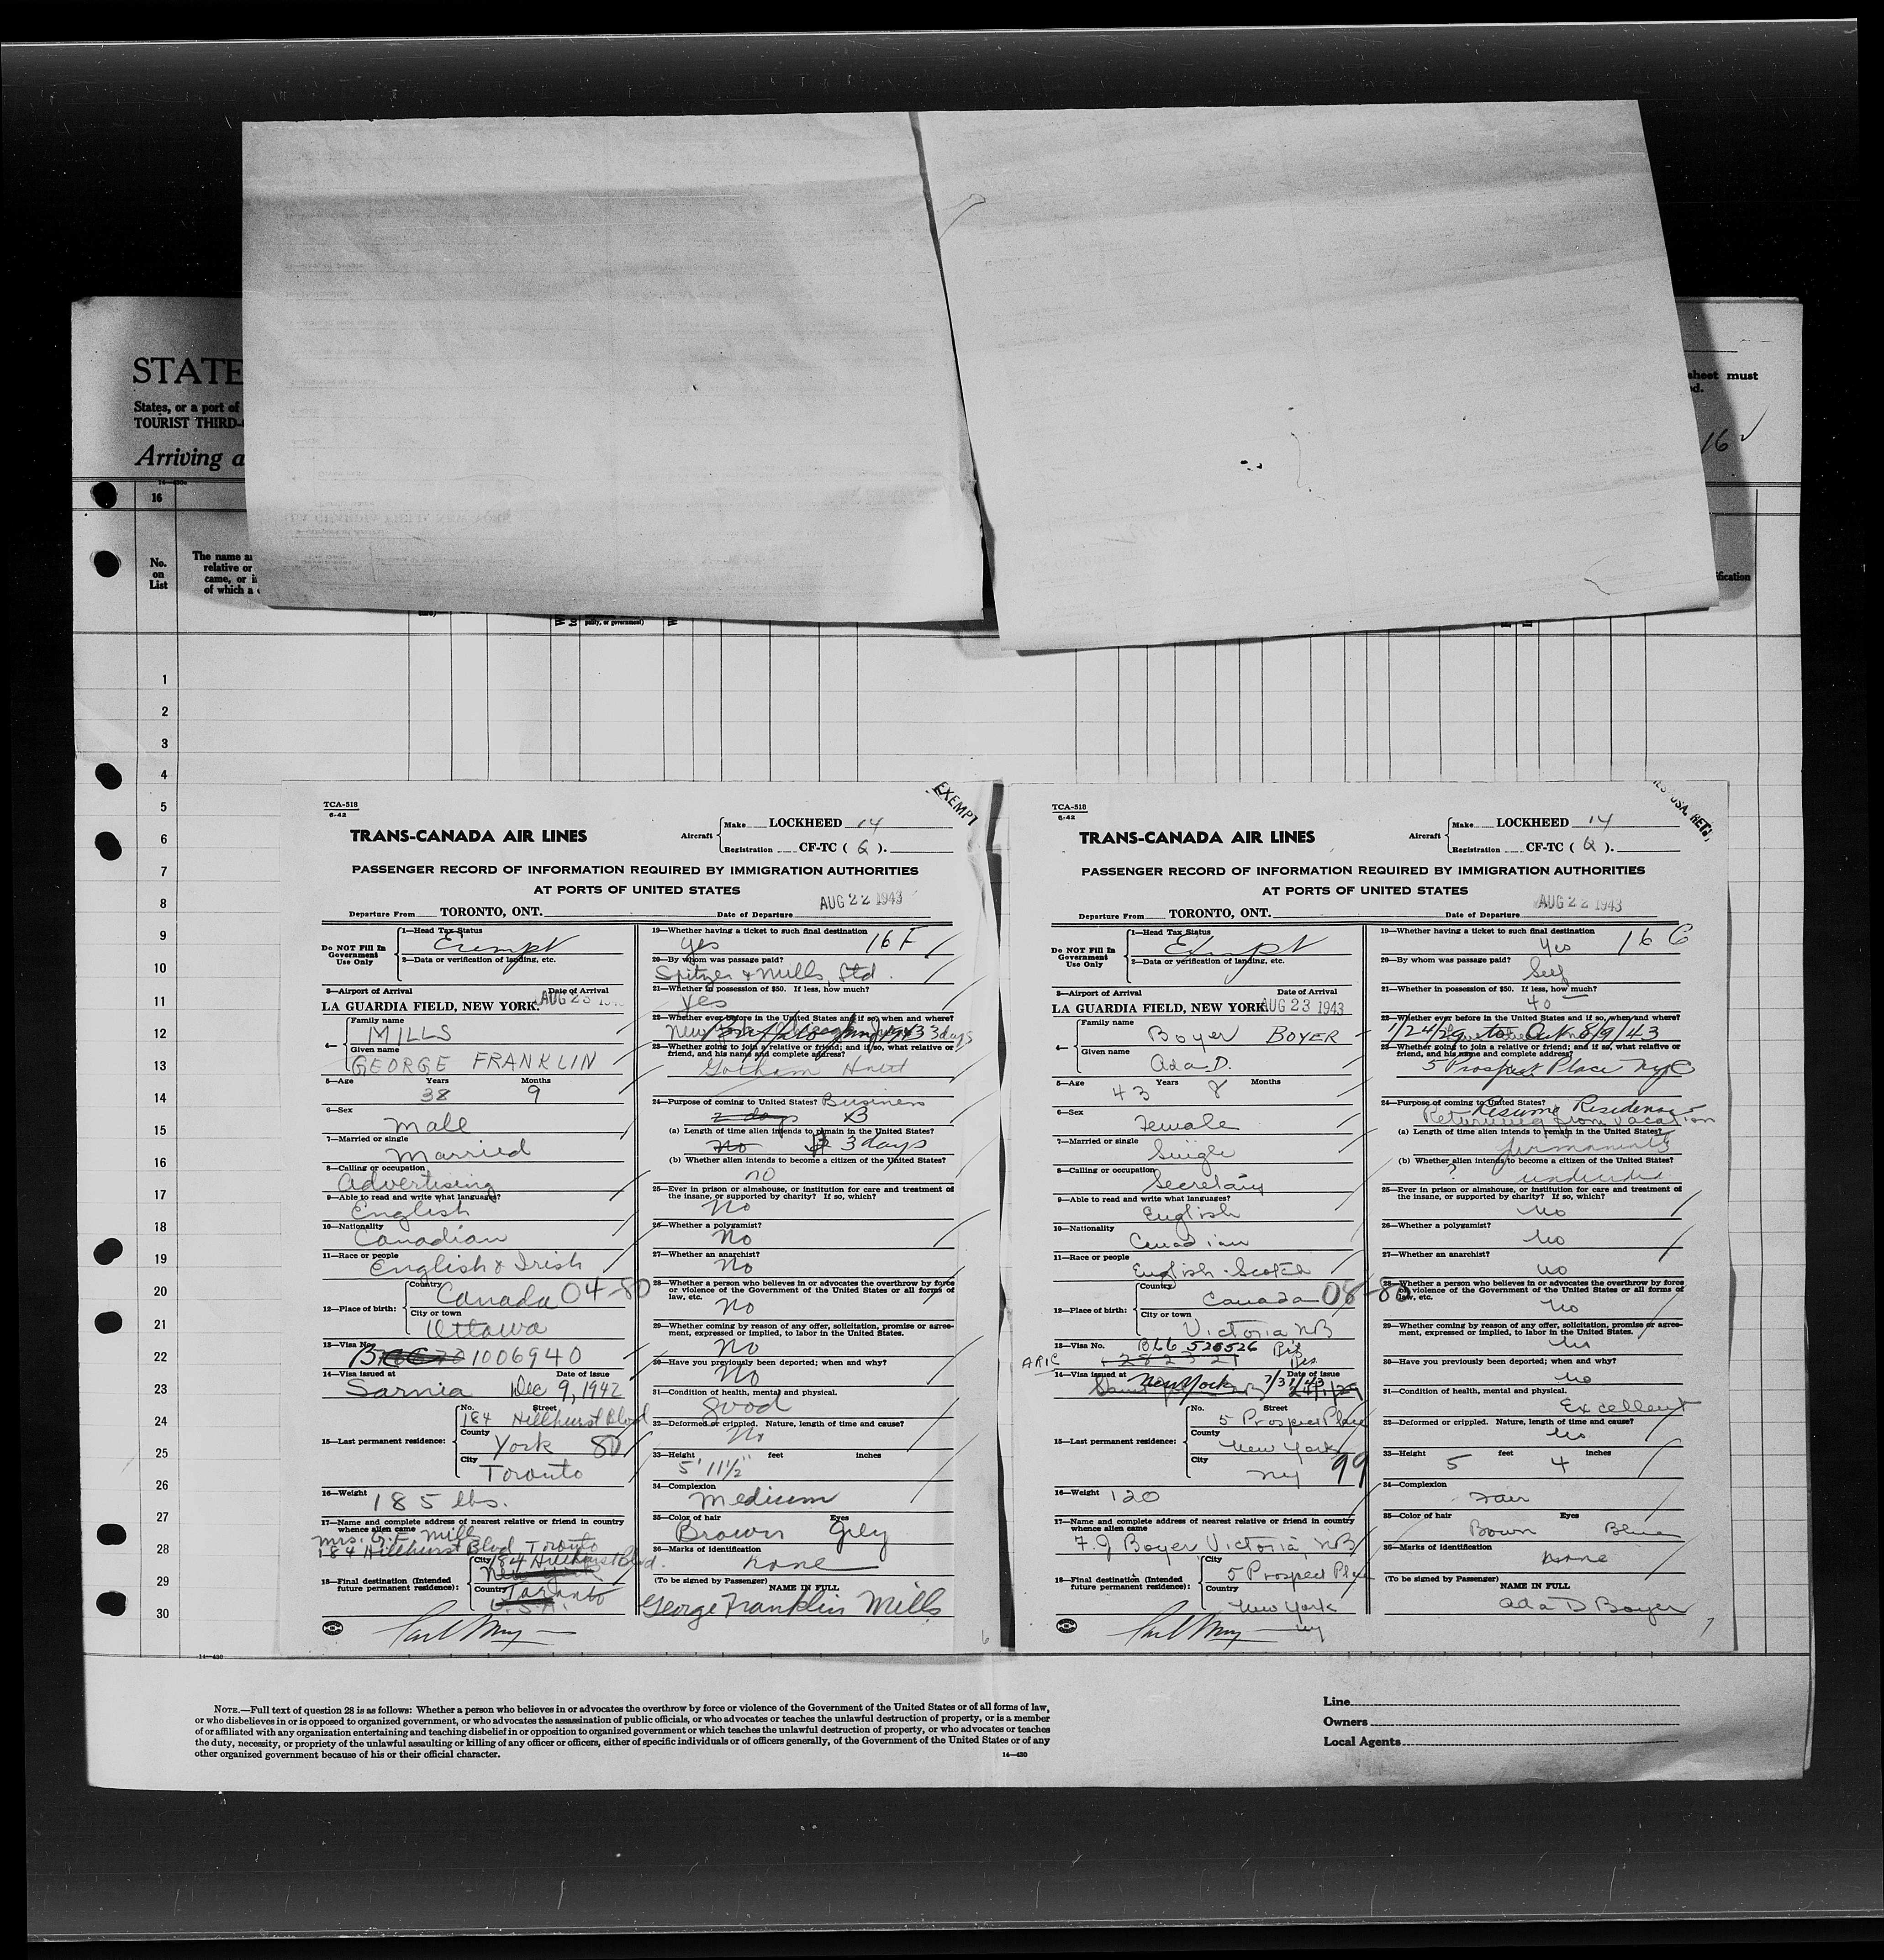 STATE
States, or a port of
TOURIST THIRD-
Arriving a
sheet must
ed.
16
16
No.
on
List
The name a
relative or
came, or i
of which a
pality, or government)
ification
1
2
3
4
5
6
7
8
9
10
11
12
13
14
15
16
17
18
19
20
21
22
23
24
25
26
27
28
29
30
TCA-518
6-42
EXEMPT
TRANS-CANADA AIR LINES
Aircraft
Make LOCKHEED 14
Registration CF-TC ( Q ).
PASSENGER RECORD OF INFORMATION REQUIRED BY IMMIGRATION AUTHORITIES
AT PORTS OF UNITED STATES
AUG 22 1943
Departure From TORONTO, ONT.
Date of Departure
Do NOT Fill In
Government
Use Only
1—Head Tax Status
Exempt
2—Data or verification of landing, etc.
3—Airport of Arrival
Date of Arrival
LA GUARDIA FIELD, NEW YORK. AUG 23
4—
Family name
MILLS
Given name
GEORGE FRANKLIN
5—Age Years Months
38 9
6—Sex
Male
7—Married or single
Married
8—Calling or occupation
Advertising
9—Able to read and write what languages?
English
10—Nationality
Canadian
11—Race or people
English & Irish
12—Place of birth:
Country
Canada 04-80
City or town
Ottawa
13—Visa No.
1006940
14—Visa issued at Date of issue
Sarnia Dec 9, 1942
15—Last permanent residence:
No. Street
184 Hillhurst Blvd
County
York 80
City
Toronto
16—Weight
185 lbs.
17—Name and complete address of nearest relative or friend in country
whence alien came
Mrs. G. F. Mills
184 Hillhurst Blvd Toronto
18—Final destination (Intended
future permanent residence):
City 184 Hillhurst Blvd.
New York
Country
Toronto
U.S.A.
19—Whether having a ticket to such final destination
yes 16 F
20—By whom was passage paid?
Spitzer & Mills, Ltd.
21—Whether in possession of $50. If less, how much?
Yes
22—Whether ever before in the United States and if so, when and where?
New York 1943 3 days
23—Whether going to join a relative or friend; and if so, what relative or
friend, and his name and complete address?
Gotham Hotel
24—Purpose of coming to United States? Business
2 days B
(a) Length of time alien intends to remain in the United States?
No 3 days
(b) Whether alien intends to become a citizen of the United States?
no
25—Ever in prison or almshouse, or institution for care and treatment of
the insane, or supported by charity? If so, which?
No
26—Whether a polygamist?
No
27—Whether an anarchist?
No
28—Whether a person who believes in or advocates the overthrow by force
or violence of the Government of the United States or all forms of
law, etc.
No
29—Whether coming by reason of any offer, solicitation, promise or agree-
ment, expressed or implied, to labor in the United States.
No
30—Have you previously been deported; when and why?
No
31—Condition of health, mental and physical.
good
32—Deformed or crippled. Nature, length of time and cause?
No
33—Height feet inches
5' 11½"
34—Complexion
Medium
35—Color of hair Eyes
Brown Grey
36—Marks of identification
none
(To be signed by Passenger)
NAME IN FULL
George Franklin Mills
6
TCA-518
6-42
USA. RET.
TRANS-CANADA AIR LINES
Aircraft
Make LOCKHEED 14
Registration CF-TC ( Q ).
PASSENGER RECORD OF INFORMATION REQUIRED BY IMMIGRATION AUTHORITIES
AT PORTS OF UNITED STATES
AUG 22 1943
Departure From TORONTO, ONT.
Date of Departure
Do NOT Fill In
Government
Use Only
1—Head Tax Status
Exempt
2—Data or verification of landing, etc.
3—Airport of Arrival
Date of Arrival
LA GUARDIA FIELD, NEW YORK AUG 23 1943
4—
Family name
Boyer BOYER
Given name
Ada D.
5—Age Years Months
43 8
6—Sex
Female
7—Married or single
Single
8—Calling or occupation
Secretary
9—Able to read and write what languages?
English
10—Nationality
Canadian
11—Race or people
English-Scotch
12—Place of birth:
Country
Canada 08-80
City or town
Victoria NB
13—Visa No.
525526
ARIC
14—Visa issued at Date of issue
New York 7/31/43
15—Last permanent residence:
No. Street
5 Prospect Place
County
New York
City
NY 99
16—Weight 120
17—Name and complete address of nearest relative or friend in country
whence alien came
F. J Boyer Victoria, NB
18—Final destination (Intended
future permanent residence):
City
5 Prospect Place
Country
New York
NY
19—Whether having a ticket to such final destination
Yes 16 G
20—By whom was passage paid?
Self
21—Whether in possession of $50. If less, how much?
40
22—Whether ever before in the United States and if so, when and where?
1/24/29 to 8/9/43
23—Whether going to join a relative or friend; and if so, what relative or
friend, and his name and complete address?
5 Prospect Place NYC
24—Purpose of coming to United States?
Resume Residence
Returning from vacation
(a) Length of time alien intends to remain in the United States?
permanently
(b) Whether alien intends to become a citizen of the United States?
? undecided
25—Ever in prison or almshouse, or institution for care and treatment of
the insane, or supported by charity? If so, which?
No
26—Whether a polygamist?
No
27—Whether an anarchist?
no
28—Whether a person who believes in or advocates the overthrow by force
or violence of the Government of the United States or all forms of
law, etc.
No
29—Whether coming by reason of any offer, solicitation, promise or agree-
ment, expressed or implied, to labor in the United States.
No
30—Have you previously been deported; when and why?
No
31—Condition of health, mental and physical.
Excellent
32—Deformed or crippled. Nature, length of time and cause?
No
33—Height feet inches
5 4
34—Complexion
Fair
35—Color of hair Eyes
Brown Blue
36—Marks of identification
none
(To be signed by Passenger)
NAME IN FULL
Ada D Boyer
7
14—430
NOTE.—Full text of question 28 is as follows: Whether a person who believes in or advocates the overthrow by force or violence of the Government of the United States or of all forms of law,
or who disbelieves in or is opposed to organized government, or who advocates the assassination of public officials, or who advocates or teaches the unlawful destruction of property, or is a member
of or affiliated with any organization entertaining and teaching disbelief in or opposition to organized government or which teaches the unlawful destruction of property, or who advocates or teaches
the duty, necessity, or propriety of the unlawful assaulting or killing of any officer or officers, either of specific individuals or of officers generally, of the Government of the United States or of any
other organized government because of his or their official character.
14—430
Line
Owners
Local Agents